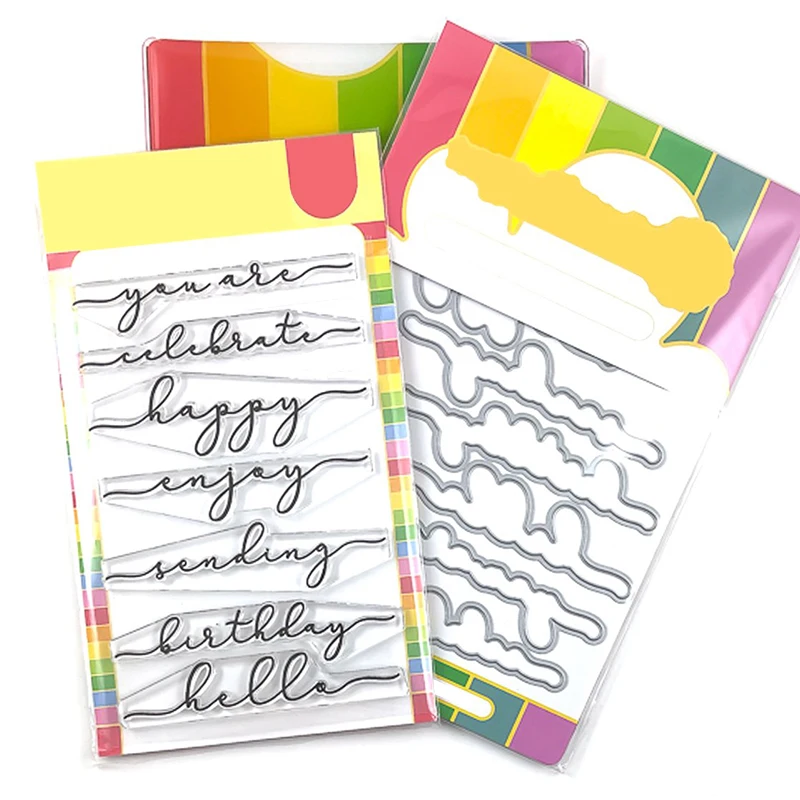 you are
celebrate
happy
enjoy
sending
birthday
hello